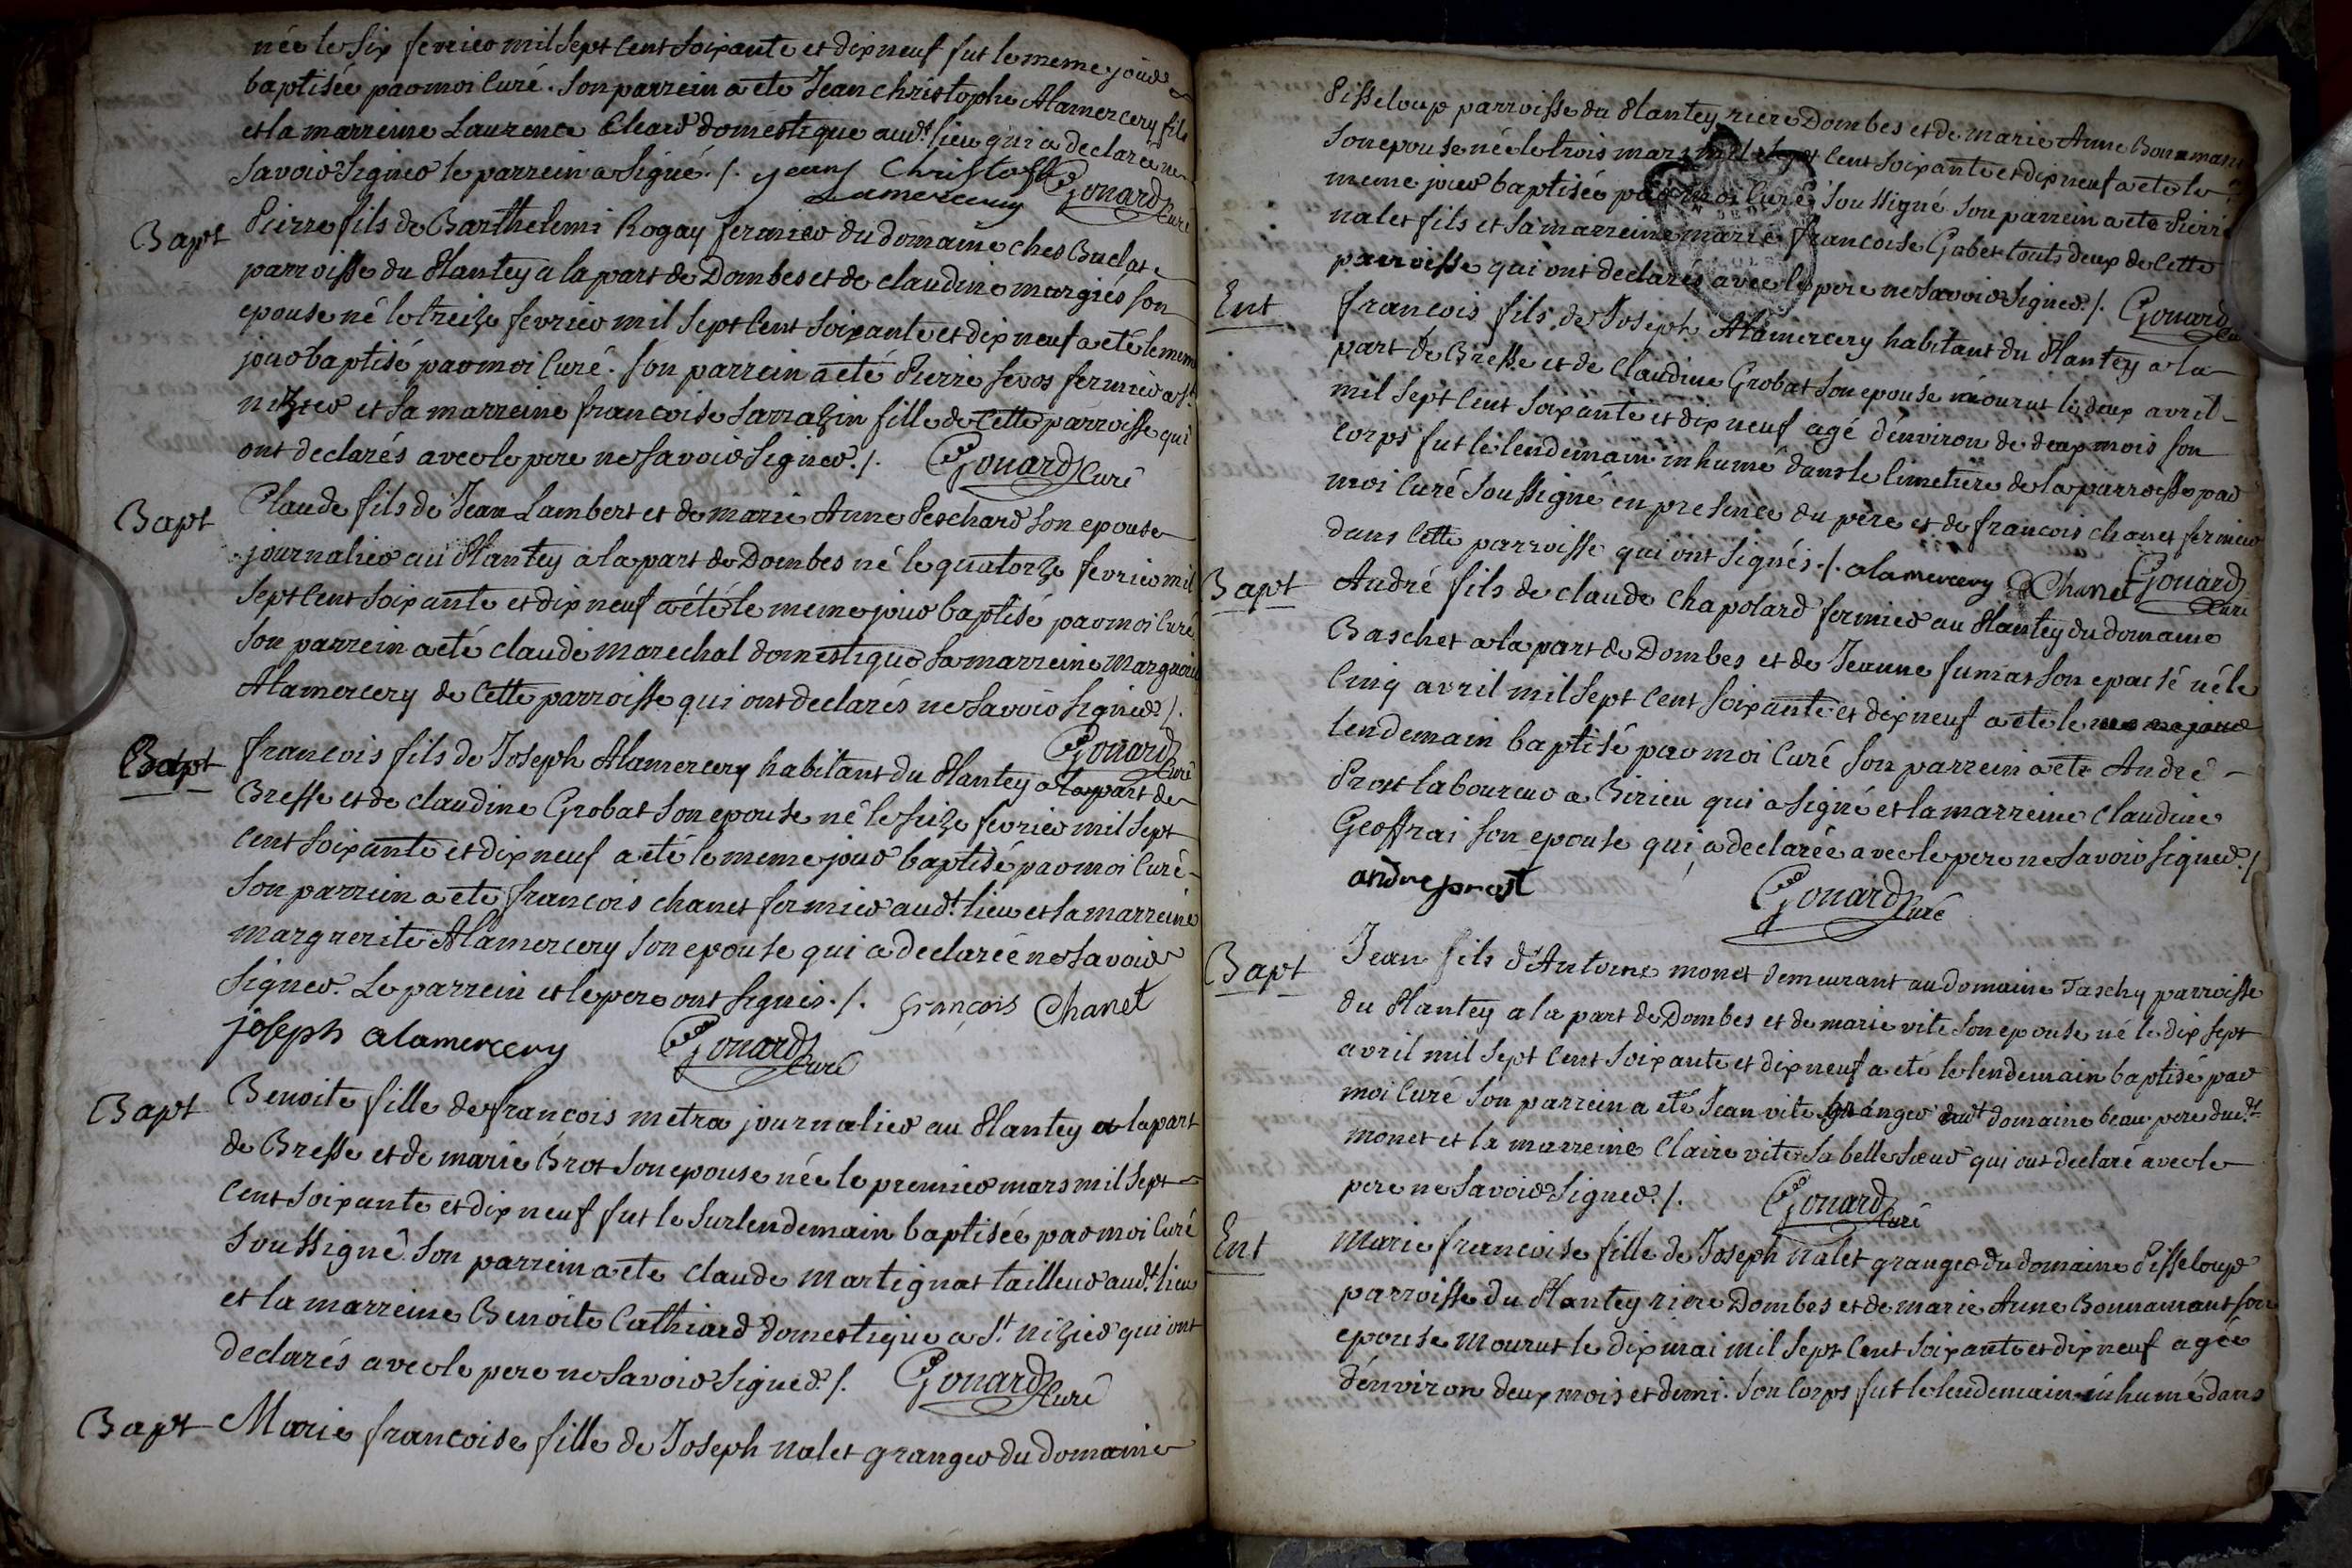 née le six fevrier mil sept cent soixante et dix neuf fut le meme jour
baptisée par moi Curé. Son parrein a ete Jean christophe Alamercery fils
et la marreine Laurence Cleard domestique audt. lieu qui a declarée ne
savoir signer le parrein a signé ./. jean Christoffe
Lamercery Gouard Curé
Bapt
Pierre fils de Barthelemi Rogay fermier du domaine ches Buclat
parroisse du Plantey a la part de Dombes et de claudine margiés son
epouse né le treize fevrier mil sept cent soixante et dix neuf a eté le meme
jour baptisé par moi Curé. son parrein a eté Pierre sevos fermier a st.
nizier et sa marreine francoise sarrazin fille de cette parroisse qui
ont declarés avec le pere ne savoir signer ./. Gouard Curé
Bapt
Claude fils de Jean Lambert et de marie Anne Peschard son epouse
journalier au Plantey a la part de Dombes né le quatorze fevrier mil
sept cent soixante et dix neuf a été le meme jour baptisé par moi Curé
son parrein a eté claude marechal domestique sa marreine marguerite
Alamercery de cette parroisse qui ont declarés ne savoir signer ./.
Gouard Curé
Bapt
francois fils de Joseph Alamercery habitant du Plantey a la part de
Bresse et de claudine Grobat son epouse né le seize fevrier mil sept
cent soixante et dix neuf a eté le meme jour baptisé par moi Curé
son parrein a ete francois chanet fermier audt. lieu et la marreine
marguerite Alamercery son epouse qui a declarée ne savoir
signer. Le parrein et le pere ont signés ./. françois Chanet
joseph alamercery Gouard Curé
Bapt
Benoite fille de francois metra journalier au Plantey a la part
de Bresse et de marie Brot son epouse née le premier mars mil sept
cent soixante et dix neuf fut le surlendemain baptisée par moi Curé
soussigné. son parrein a ete claude martignat tailleur audt. lieu
et la marreine Benoite Cathiard domestique a st nizier qui ont
declarés avec le pere ne savoir signer ./. Gouard Curé
Bapt
Marie francoise fille de Joseph nalet granger du domaine
Pisseloup parroisse du Plantey riere Dombes et de marie Anne Bonnamant
son epouse née le trois mars mil sept cent soixante et dix neuf a ete le
meme jour baptisée par moi Curé soussigné son parrein a ete Pierre
nalet fils et sa marreine marie francoise Gabet touts deux de cette
parroisse qui ont declarés avec le pere ne savoir signer ./. Gouard Curé
Ent
francois fils de Joseph Alamercery habitant du Plantey a la
part de Bresse et de Claudine Grobat son epouse mourut le deux avril
mil sept cent soixante et dix neuf agé d'environ de deux mois son
corps fut le lendemain inhumé dans le cimetiere de la parroisse par
moi Curé soussigné en presence du père et de francois chanet fermier
dans cette parroisse qui ont signés ./. alamercery Chanet Gouard
Curé
Bapt
André fils de claude chapolard fermier au Plantey du domaine
Baschet a la part de Dombes et de Jeanne fumat son epouse né le
cinq avril mil sept cent soixante et dix neuf a ete le meme jour
lendemain baptisé par moi Curé son parrein a ete André
Prost laboureur a Birieu qui a signé et la marreine claudine
Geoffrai son epouse qui a declarée avec le pere ne savoir signer ./.
andre prost Gouard Curé
Bapt
Jean fils d'Antoine monet demeurant au domaine Taschy parroisse
du Plantey a la part de Dombes et de marie vite son epouse né le dix sept
avril mil sept cent soixante et dix neuf a eté le lendemain baptisé par
moi Curé son parrein a eté Jean vite granger dudt domaine beau pere dudt.
monet et la marreine Claire vite sa belle soeur qui ont declaré avec le
pere ne savoir signer ./. Gouard Curé
Ent
marie francoise fille de Joseph nalet granger du domaine Pisseloup
parroisse du Plantey riere Dombes et de marie Anne Bonnamant son
epouse mourut le dix mai mil sept cent soixante et dix neuf agée
d'environ deux mois et demi. son corps fut le lendemain inhumé dans